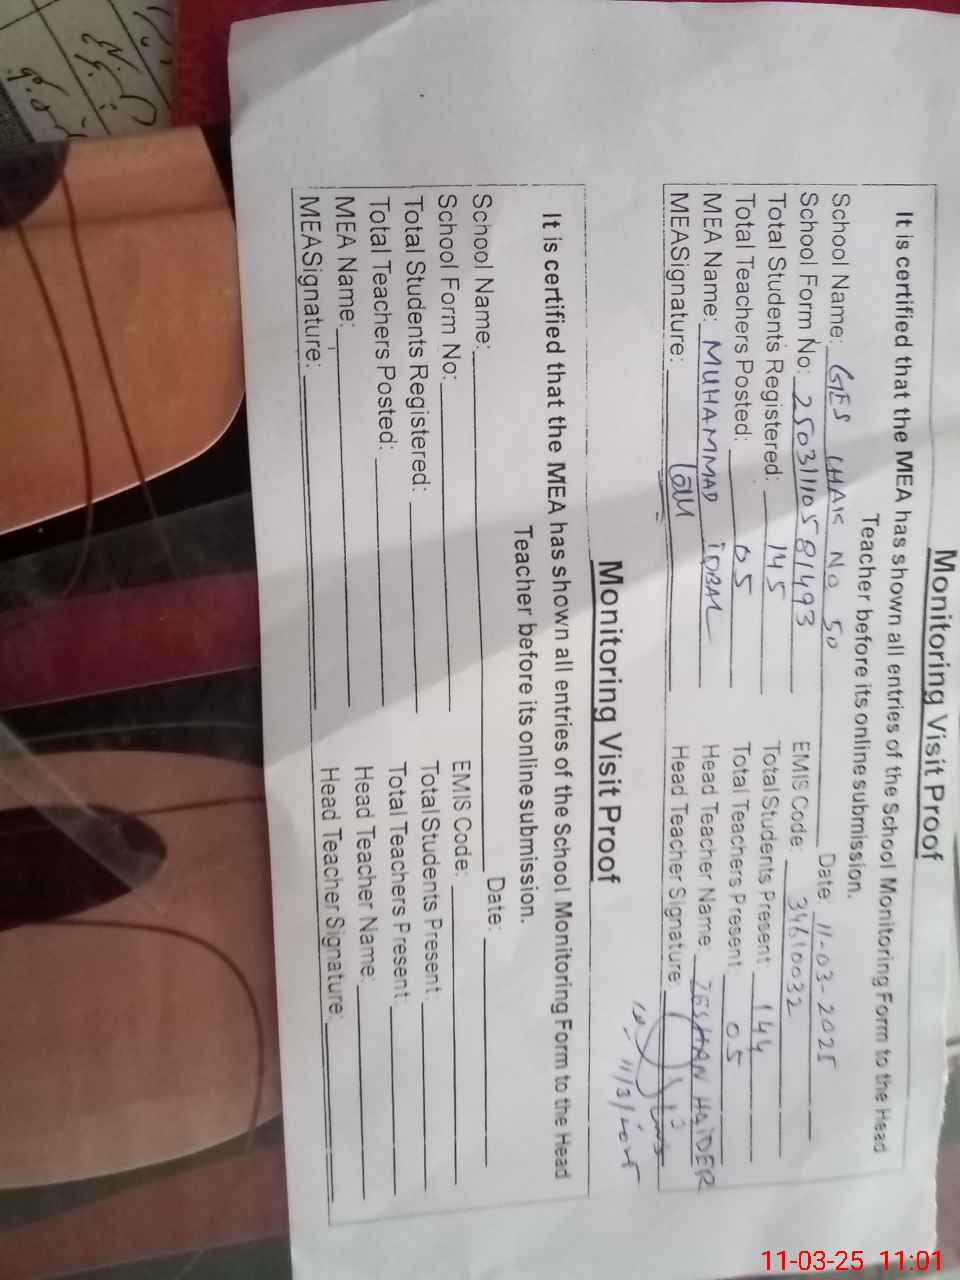 Monitoring Visit Proof
It is certified that the MEA has shown all entries of the School Monitoring Form to the Head
Teacher before its online submission.
School Name: GES CHAK NO 50 Date: 11-03-2025
School Form No: 25031110581493 EMIS Code: 34610032
Total Students Registered: 145 Total Students Present 144
Total Teachers Posted: 05 Total Teachers Present 05
MEA Name: MUHAMMAD IQBAL Head Teacher Name: ZESHAN HAIDER
MEASignature: Head Teacher Signature:
11/3/2025
Monitoring Visit Proof
It is certified that the MEA has shown all entries of the School Monitoring Form to the Head
Teacher before its online submission.
School Name: Date:
School Form No: EMIS Code:
Total Students Registered: Total Students Present:
Total Teachers Posted: Total Teachers Present
MEA Name: Head Teacher Name:
MEASignature: Head Teacher Signature:
11-03-25 11:01